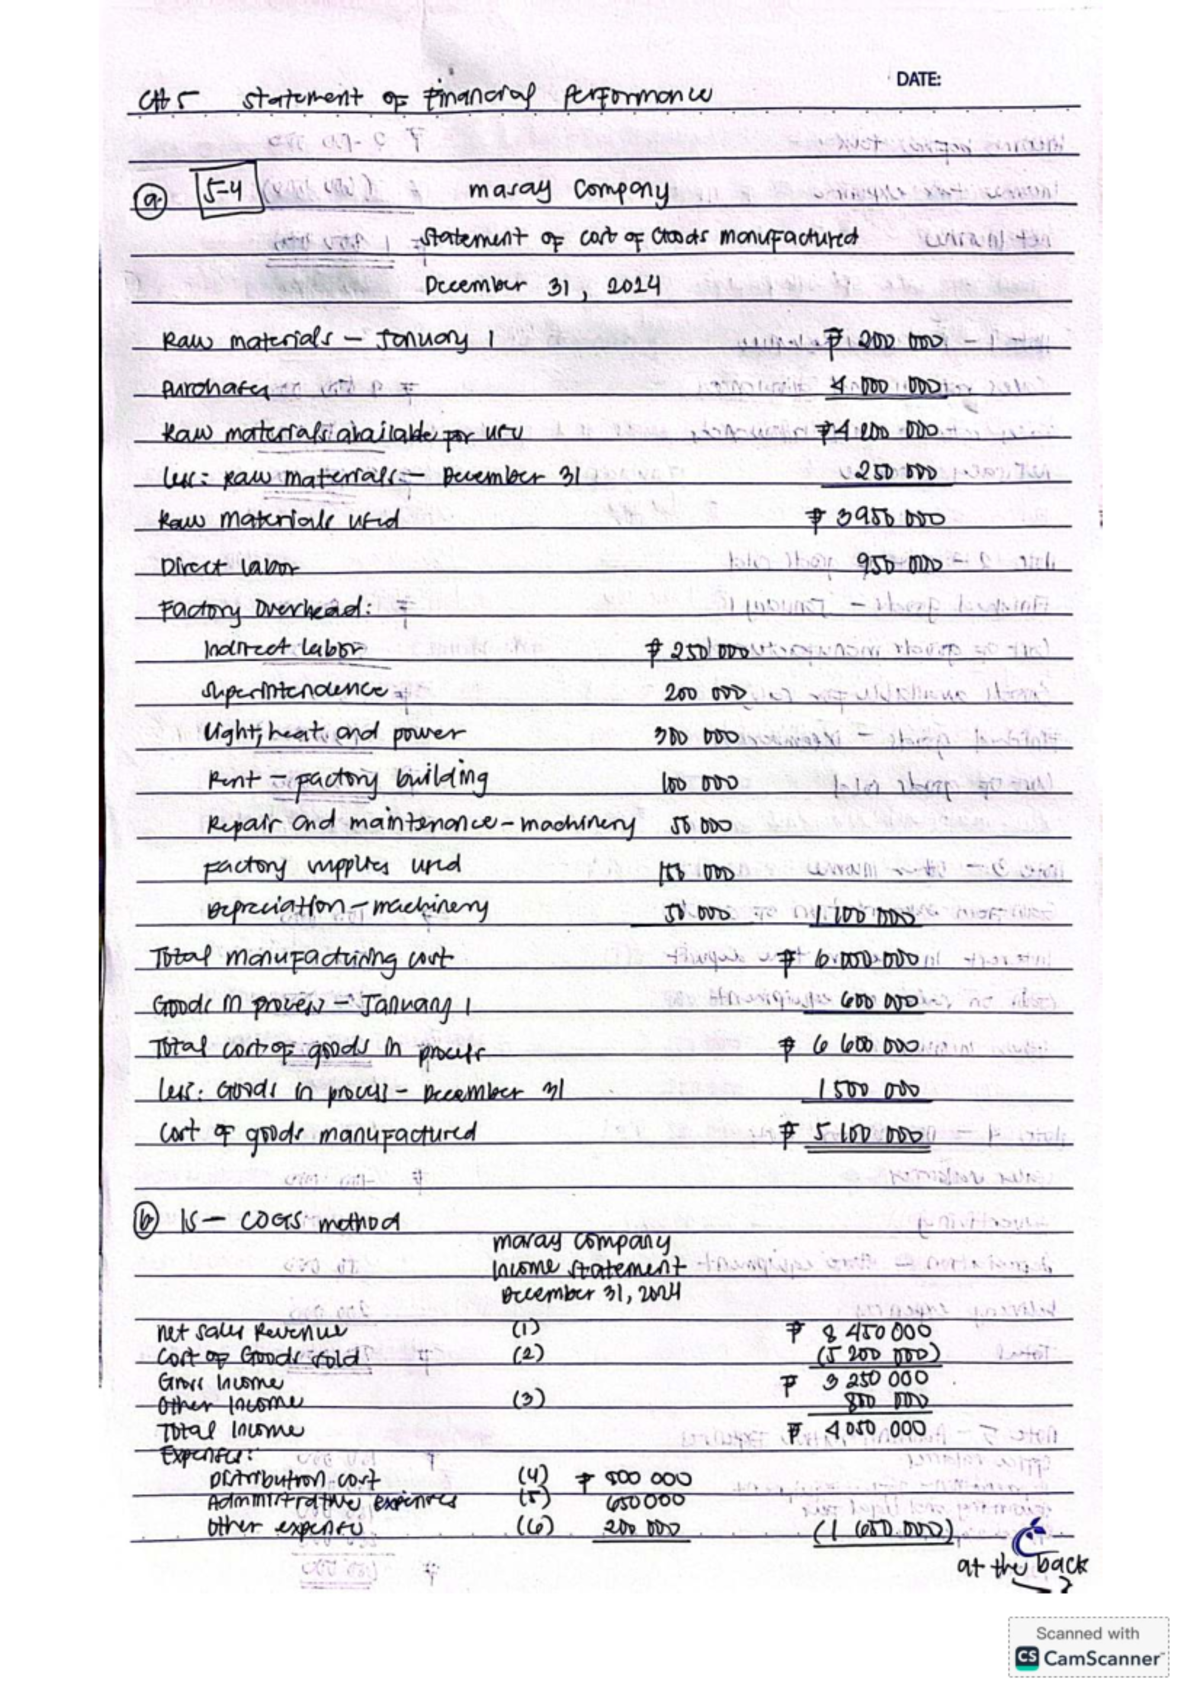 DATE:
CH 5 Statement of Financial Performance
(a) 5-4 Maray Company
Statement of Cost of Goods Manufactured
December 31, 2024
Raw materials - January 1 ₱ 200 000
Purchases 4 000 000
Raw materials available for use ₱ 4 200 000
Less: Raw materials - December 31 250 000
Raw materials used ₱ 3 950 000
Direct labor 950 000
Factory Overhead:
Indirect labor ₱ 250 000
Superintendence 200 000
Light, heat and power 300 000
Rent - factory building 100 000
Repair and maintenance - machinery 50 000
Factory supplies used 150 000
Depreciation - machinery 50 000 1 100 000
Total manufacturing cost ₱ 6 000 000
Goods in process - January 1 600 000
Total cost of goods in process ₱ 6 600 000
Less: Goods in process - December 31 1 500 000
Cost of goods manufactured ₱ 5 100 000
(b) IS - COGS method
Maray Company
Income Statement
December 31, 2024
Net Sales Revenue (1) ₱ 8 450 000
Cost of Goods sold (2) (5 200 000)
Gross Income ₱ 3 250 000
Other Income (3) 800 000
Total Income ₱ 4 050 000
Expenses:
Distribution cost (4) ₱ 800 000
Administrative expenses (5) 650 000
Other expense (6) 200 000 (1 650 000)
at the back
Scanned with
CS CamScanner